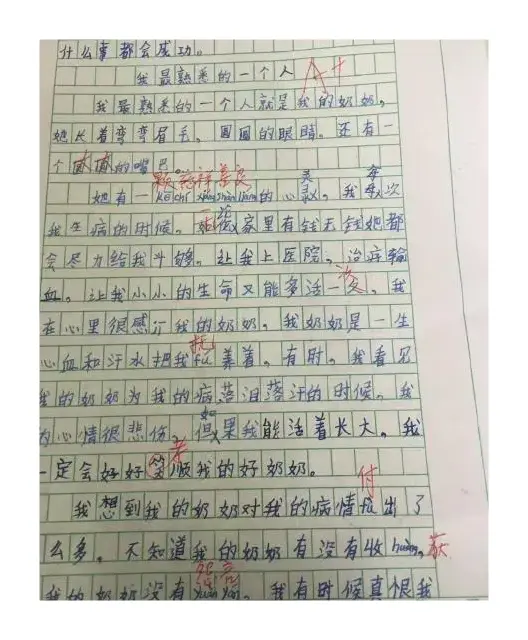 什么事都会成功。
我最熟悉的一个人 A+
我最熟悉的一个人就是我的奶奶，
她长着弯弯眉毛，圆圆的眼睛。还有一
个的嘴巴。
颗 慈祥善良 灵 每
她有一 kē cí xiáng shàn liáng 的心，我每次
我生病的时候。家里有钱无钱她都
会尽力给我斗够。让我上医院，治病输
血，让我小小的生命又能多活一次，我
在心里很感谢我的奶奶，我奶奶是一生
抚
心血和汗水把我 fǔ 养着。有时，我看见
我的奶奶为我的病落泪落汗的时候，我
如
的心情很悲伤，果我能活着长大，我
孝
一定会好好顺我的好奶奶。
付
我想到我的奶奶对我的病情 fù 出了
么多，不知道我的奶奶有没有收 huò，获
我的奶奶没有 yuàn yán，我有时候真恨我